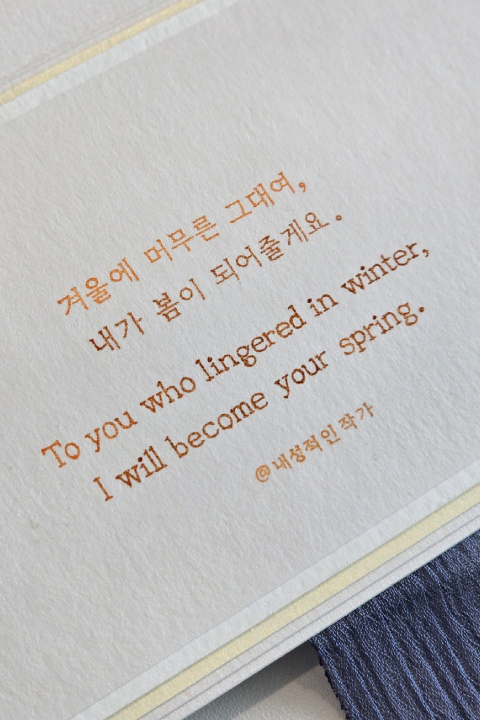 겨울에 머무른 그대여,
내가 봄이 되어줄게요.
To you who lingered in winter,
I will become your spring.
@내성적인작가